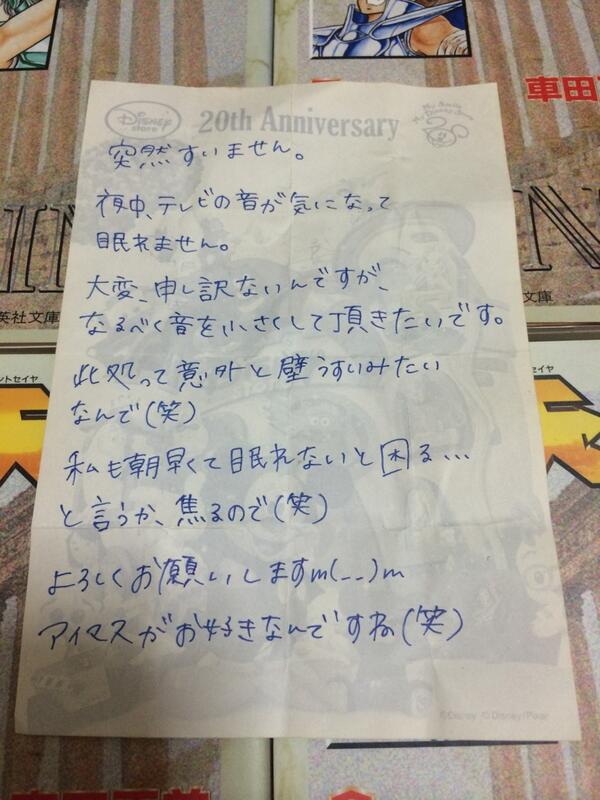 車田
Disney
store
20th Anniversary
突然すいません。
夜中、テレビの音が気になって
眠れません。
大変、申し訳ないんですが、
なるべく音を小さくして頂きたいです。
此処って意外と壁うすいみたい
なんで(笑)
私も朝早くて眠れないと困る…
と言うか、焦るので(笑)
よろしくお願いしますm(__)m
アイマスがお好きなんですね(笑)
©Disney ©Disney/Pixar
英社文庫
文庫
ントセイヤ
セイヤ